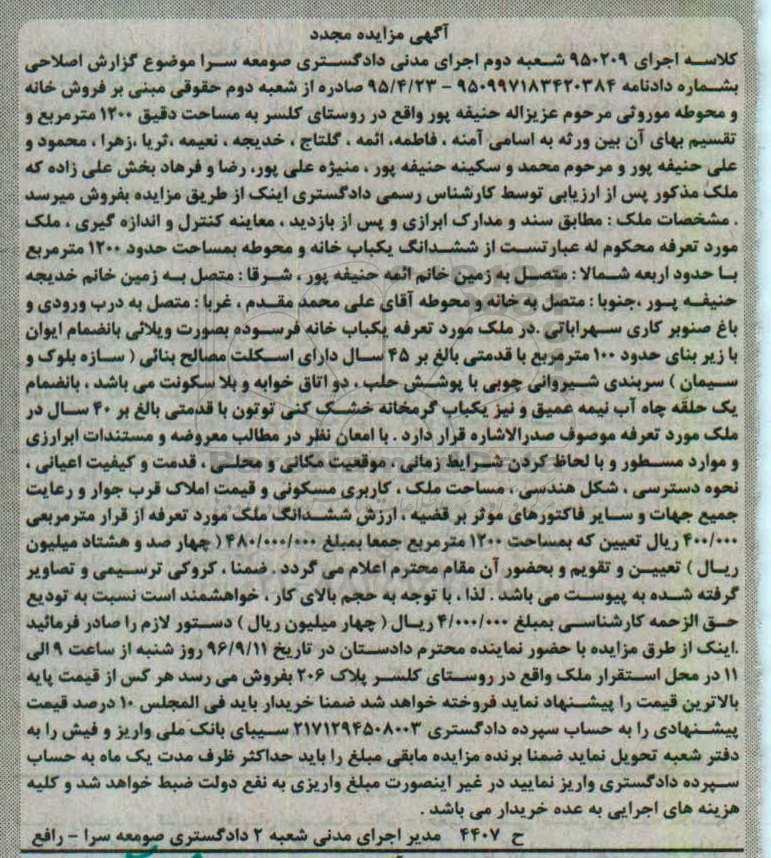 آگهی مزایده مجدد
کلاسه اجرای ۹۵۰۲۰۹ شعبه دوم اجرای مدنی دادگستری صومعه سرا موضوع گزارش اصلاحی
بشماره دادنامه ۹۵۰۹۹۷۱۸۳۴۲۰۳۸۴ - ۹۵/۴/۲۳ صادره از شعبه دوم حقوقی مبنی بر فروش خانه
و محوطه موروثی مرحوم عزیزاله حنیفه پور واقع در روستای کلسر به مساحت دقیق ۱۲۰۰ مترمربع و
تقسیم بهای آن بین ورثه به اسامی آمنه ، فاطمه، ائمه ، گلتاج ، خدیجه ، نعیمه ،ثریا ،زهرا ، محمود و
علی حنیفه پور و مرحوم محمد و سکینه حنیفه پور ، منیژه علی پور، رضا و فرهاد بخش علی زاده که
ملک مذکور پس از ارزیابی توسط کارشناس رسمی دادگستری اینک از طریق مزایده بفروش میرسد
. مشخصات ملک : مطابق سند و مدارک ابرازی و پس از بازدید ، معاینه کنترل و اندازه گیری ، ملک
مورد تعرفه محکوم له عبارتست از ششدانگ یکباب خانه و محوطه بمساحت حدود ۱۲۰۰ مترمربع
با حدود اربعه شمالا : متصل به زمین خانم ائمه حنیفه پور ، شرقا : متصل به زمین خانم خدیجه
حنیفه پور ،جنوبا : متصل به خانه و محوطه آقای علی محمد مقدم ، غربا : متصل به درب ورودی و
باغ صنوبر کاری سهراباتی .در ملک مورد تعرفه یکباب خانه فرسوده بصورت ویلائی بانضمام ایوان
با زیر بنای حدود ۱۰۰ مترمربع با قدمتی بالغ بر ۴۵ سال دارای اسکلت مصالح بنائی ( سازه بلوک و
سیمان ) سربندی شیروانی چوبی با پوشش حلب ، دو اتاق خوابه و بلا سکونت می باشد ، بانضمام
یک حلقه چاه آب نیمه عمیق و نیز یکباب گرمخانه خشک کنی توتون با قدمتی بالغ بر ۴۰ سال در
ملک مورد تعرفه موصوف صدرالاشاره قرار دارد . با امعان نظر در مطالب معروضه و مستندات ابرارزی
و موارد مسطور و با لحاظ کردن شرایط زمانی ، موقعیت مکانی و محلی ، قدمت و کیفیت اعیانی ،
نحوه دسترسی ، شکل هندسی ، مساحت ملک ، کاربری مسکونی و قیمت املاک قرب جوار و رعایت
جمیع جهات و سایر فاکتورهای موثر بر قضیه ، ارزش ششدانگ ملک مورد تعرفه از قرار مترمربعی
۴۰۰/۰۰۰ ریال تعیین که بمساحت ۱۲۰۰ مترمربع جمعا بمبلغ ۴۸۰/۰۰۰/۰۰۰ ( چهار صد و هشتاد میلیون
ریال ) تعیین و تقویم و بحضور آن مقام محترم اعلام می گردد . ضمنا ، کروکی ترسیمی و تصاویر
گرفته شده به پیوست می باشد . لذا ، با توجه به حجم بالای کار ، خواهشمند است نسبت به تودیع
حق الزحمه کارشناسی بمبلغ ۴/۰۰۰/۰۰۰ ریال ( چهار میلیون ریال ) دستور لازم را صادر فرمائید
.اینک از طرق مزایده با حضور نماینده محترم دادستان در تاریخ ۹۶/۹/۱۱ روز شنبه از ساعت ۹ الی
۱۱ در محل استقرار ملک واقع در روستای کلسر پلاک ۲۰۶ بفروش می رسد هر کس از قیمت پایه
بالاترین قیمت را پیشنهاد نماید فروخته خواهد شد ضمنا خریدار باید فی المجلس ۱۰ درصد قیمت
پیشنهادی را به حساب سپرده دادگستری ۲۱۷۱۲۹۴۵۰۸۰۰۳ سیبای بانک ملی واریز و فیش را به
دفتر شعبه تحویل نماید ضمنا برنده مزایده مابقی مبلغ را باید حداکثر ظرف مدت یک ماه به حساب
سپرده دادگستری واریز نمایید در غیر اینصورت مبلغ واریزی به نفع دولت ضبط خواهد شد و کلیه
هزینه های اجرایی به عده خریدار می باشد .
ح ۴۴۰۷ مدیر اجرای مدنی شعبه ۲ دادگستری صومعه سرا - رافع